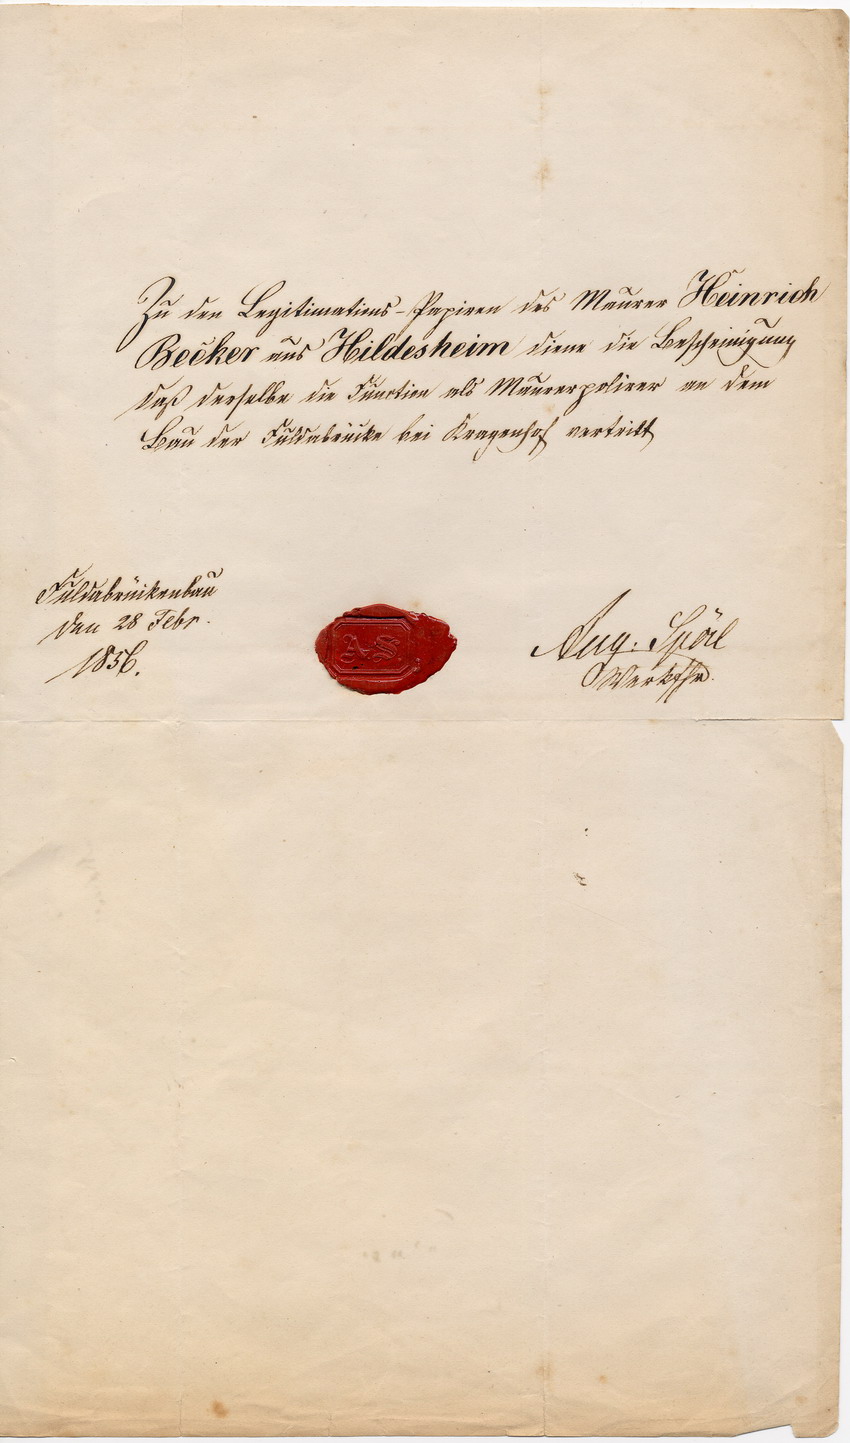 Zu den Legitimations-Papiren des Maurer Heinrich
Becker aus Hildesheim diene die Bescheinigung
daß derselbe die Function als Maurerpolirer an dem
Bau der Fuldabrücke bei Kragenhof vertritt
Fuldabrückenbau
den 28 Febr.
1856.
A S
Aug. Spöl
Werkfhr.